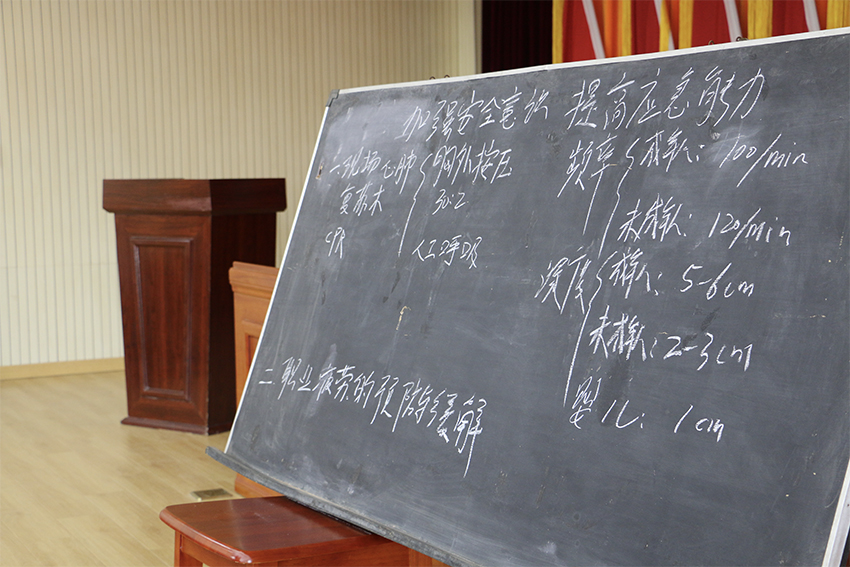 加强安全意识 提高应急能力
一.现场心肺复苏术
CPR
胸外按压
30:2
人工呼吸
频率
成年人: 100/min
未成年人: 120/min
深度
成年人: 5-6cm
未成年人: 2-3cm
婴儿: 1cm
二.职业疲劳的预防与缓解